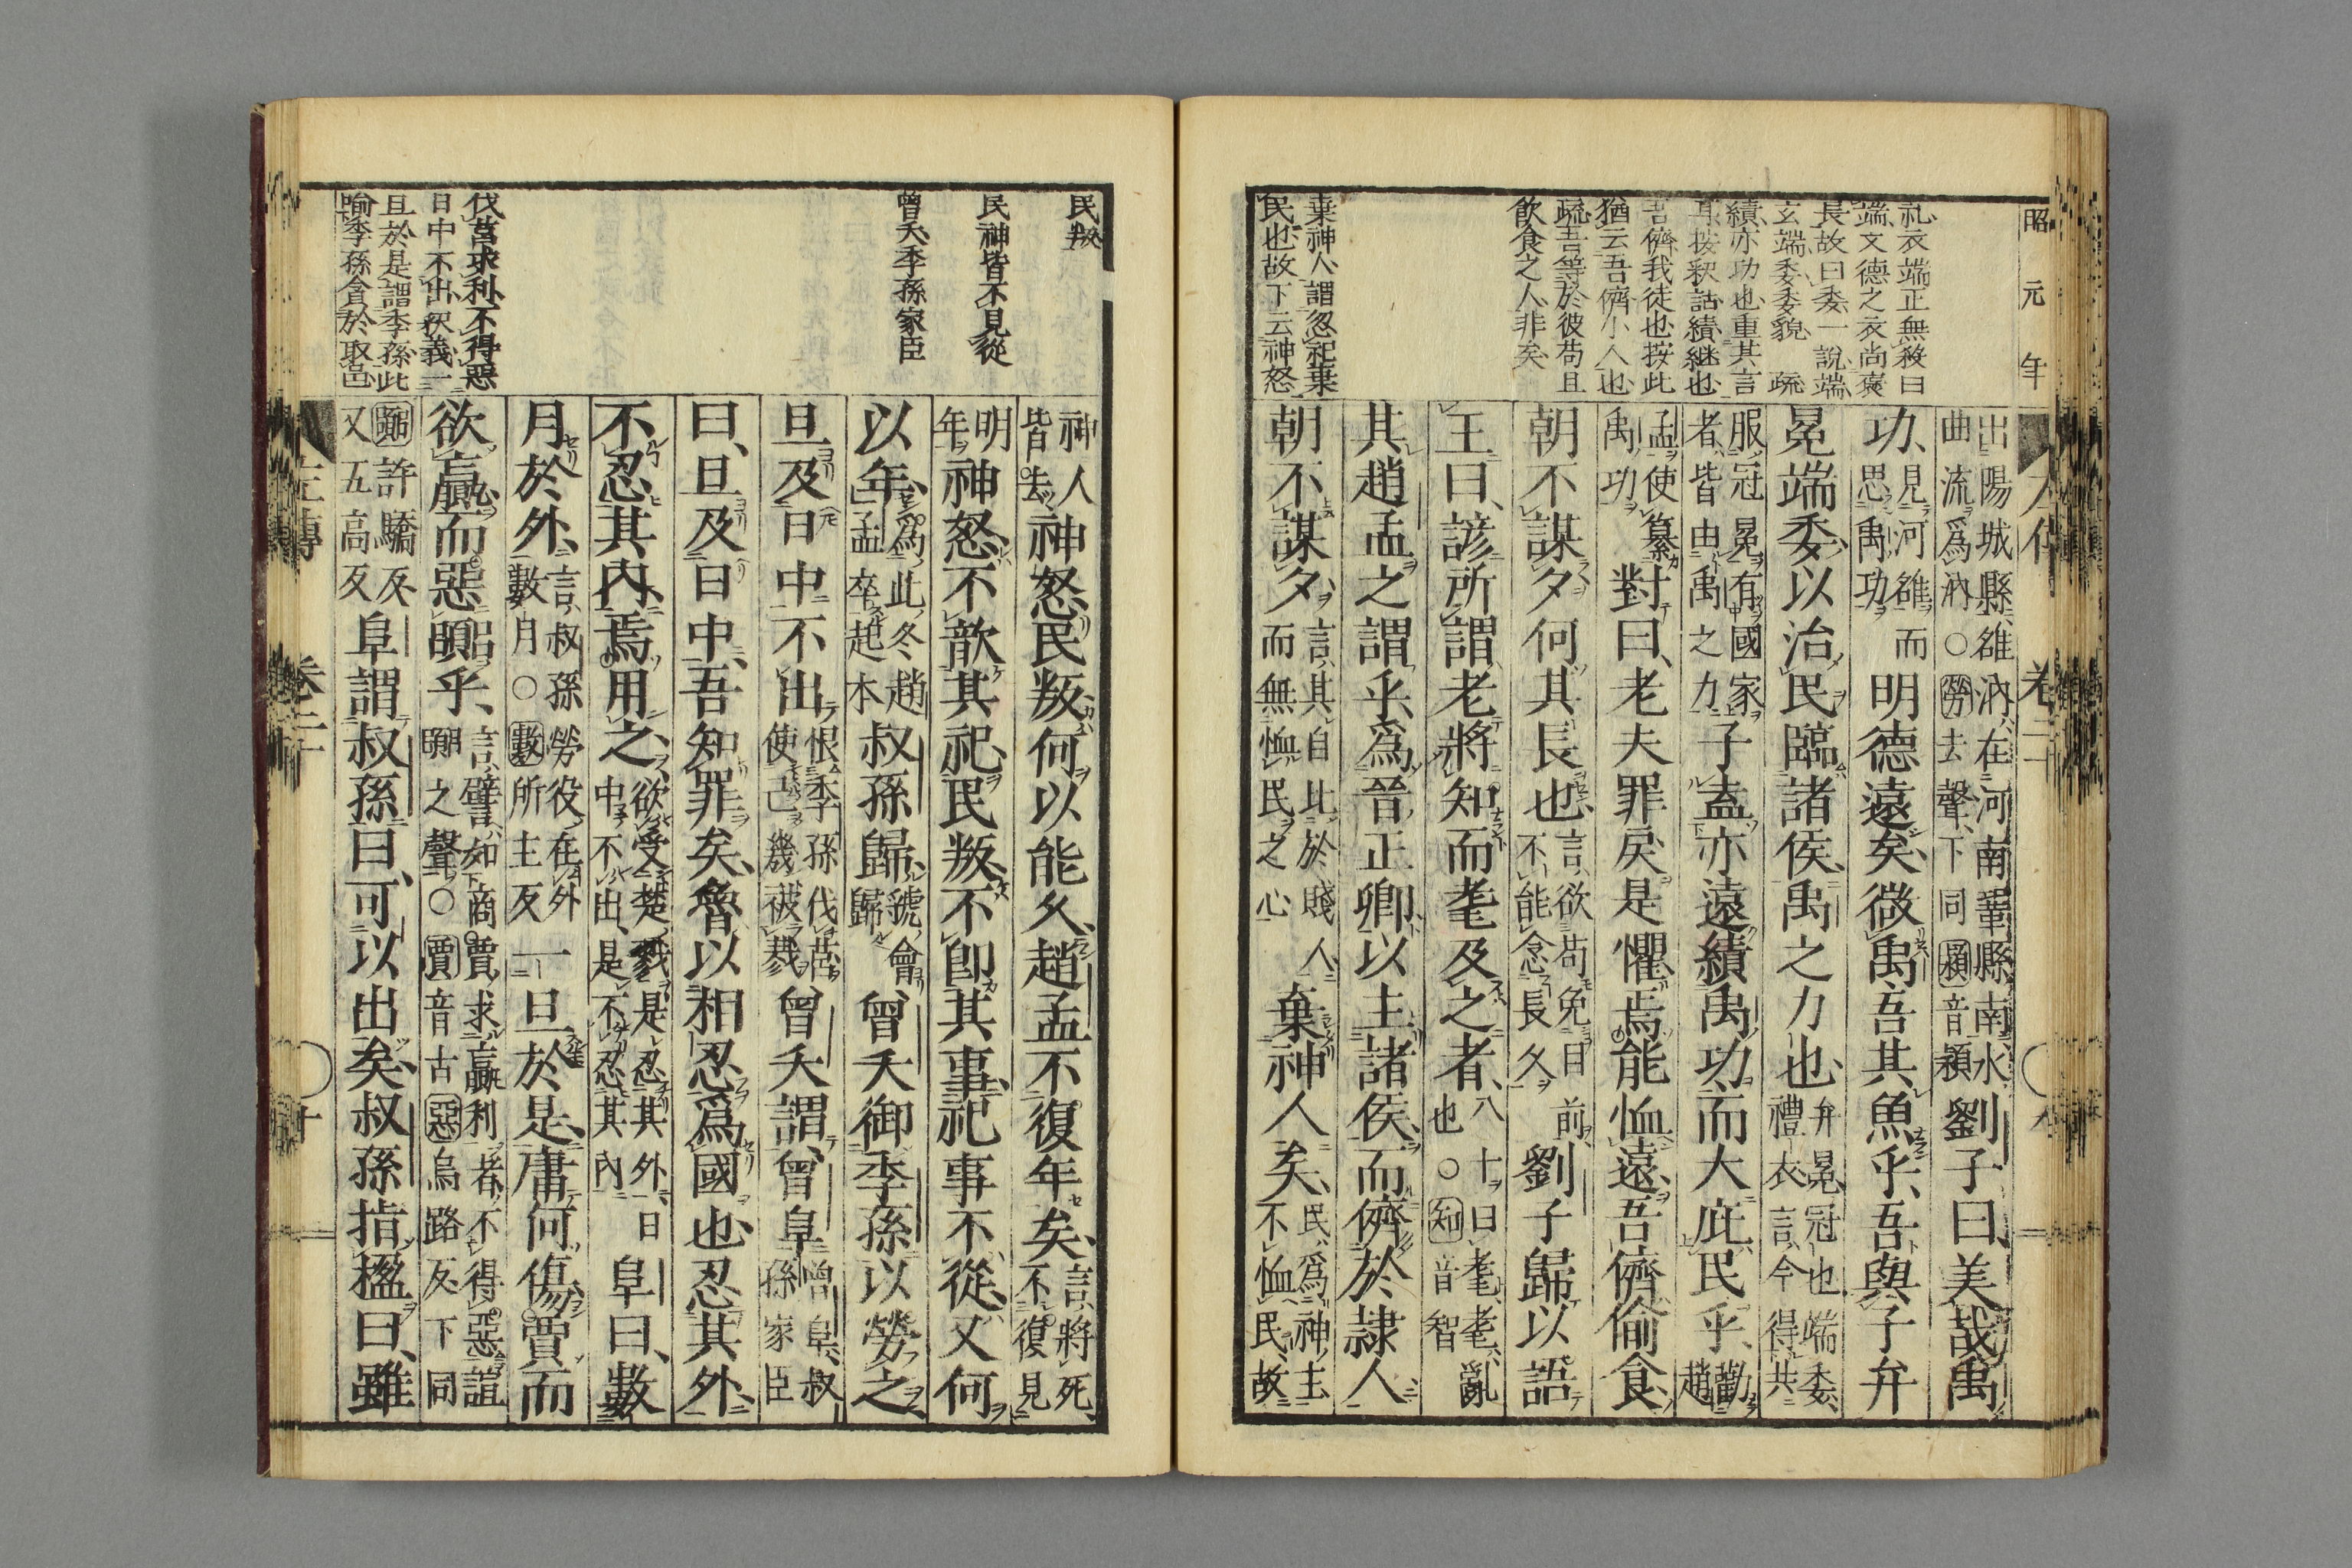 昭元年
礼衣端正無殺曰
端文德之衣尚褒
長故曰委一說端
玄端委委貌 疏
績亦功也重其言
耳按釈詁績継也
吾儕我徒也按此
猶云吾儕小人也
疏吾等於彼苟且
飲食之人非矣
棄神人謂忽祀棄
民也故下云神怒
出陽城縣雒汭在河南鞏縣南水
曲流爲汭○勞去聲下同潁音潁劉子曰美哉禹
功見河雒而思禹功明德遠矣微禹吾其魚乎吾與子弁
冕端委以治民臨諸侯禹之力也弁冕冠也端委禮衣言今得共
服冠冕有國家者皆由禹之力子盍亦遠績禹功而大庇民乎勸趙
孟使纂禹功對曰老夫罪戾是懼焉能恤遠吾儕偷食
朝不謀夕何其長也言欲苟免目前不能念長久劉子歸以語
王曰諺所謂老將知而耄及之者八十曰耄耄亂也○知音智
其趙孟之謂乎爲晉正卿以主諸侯而儕於隷人
朝不謀夕言其自比於賤人而無恤民之心棄神人矣民爲神主不恤民故
卷二十
九
民叛
民神皆不見從
曾夭季孫家臣
伐莒求利不得惡
日中不出釈義一
旦於是謂季孫此
喻季孫貪於取邑
神人皆去神怒民叛何以能久趙孟不復年矣言將死不復見
明年神怒不歆其祀民叛不卽其事祀事不從又何
以年爲此冬趙孟卒起本叔孫歸虢會歸曾夭御季孫以勞之
旦及日中不出恨季孫伐莒使己幾被戮曾夭謂曾阜曾阜叔孫家臣
曰旦及日中吾知罪矣魯以相忍爲國也忍其外
不忍其內焉用之欲受楚戮是忍其外日中不出是不忍其內阜曰數
月於外言叔孫勞役在外數月○數所主反一旦於是庸何傷賈而
欲贏而惡嚻乎言譬如商賈求贏利者不得惡諠嚻之聲○賈音古惡烏路反下同
嚻許驕反又五高反阜謂叔孫曰可以出矣叔孫指楹曰雖
左傳
卷二十
十